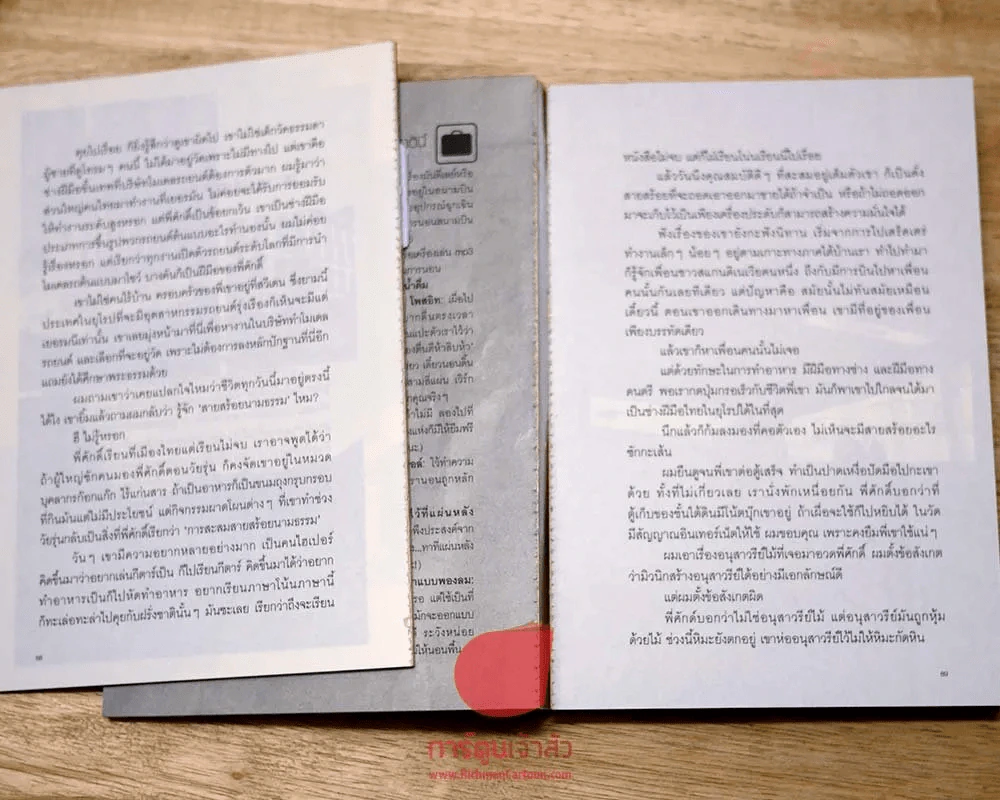 คุยไปเรื่อย ก็ยิ่งรู้สึกว่าดูเขาผิดไป เขาไม่ใช่เด็กวัดธรรมดา
ผู้ชายที่ดูโทรมๆ คนนี้ ไม่ได้มาอยู่วัดเพราะไม่มีทางไป แต่เขาคือ
ช่างฝีมือขั้นเทพที่บริษัทโมเดลรถยนต์ต้องการตัวมาก ผมรู้มาว่า
ส่วนใหญ่คนไทยมาทำงานที่เยอรมัน ไม่ค่อยจะได้รับการยอมรับ
ให้ทำงานระดับสูงหรอก แต่พี่ศักดิ์เป็นข้อยกเว้น เขาเป็นช่างฝีมือ
ประเภทการขึ้นรูปพวกรถยนต์ต้นแบบอะไรทำนองนั้น ผมไม่ค่อย
รู้เรื่องหรอก แต่เรียกว่าทุกงานเปิดตัวรถยนต์ระดับโลกที่มีการนำ
โมเดลรถต้นแบบมาโชว์ บางคันก็เป็นฝีมือของพี่ศักดิ์
เขาไม่ใช่คนไร้บ้าน ครอบครัวของพี่เขาอยู่ที่สวีเดน ซึ่งยามนี้
ประเทศในยุโรปที่จะมีอุตสาหกรรมรถยนต์รุ่งเรืองก็เห็นจะมีแต่
เยอรมนีเท่านั้น เขาเลยมุ่งหน้ามาที่นี่เพื่อหางานในบริษัททำโมเดล
รถยนต์ และเลือกที่จะอยู่วัด เพราะไม่ต้องการลงหลักปักฐานที่นี่อีก
แถมยังได้ศึกษาพระธรรมด้วย
ผมถามเขาว่าเคยแปลกใจไหมว่าชีวิตทุกวันนี้มาอยู่ตรงนี้
ได้ไง เขายิ้มแล้วถามผมกลับว่า รู้จัก 'สายสร้อยนามธรรม' ไหม?
อึ ไม่รู้หรอก
พี่ศักดิ์เรียนที่เมืองไทยแต่เรียนไม่จบ เราอาจพูดได้ว่า
ถ้าผู้ใหญ่ซักคนมองพี่ศักดิ์ตอนวัยรุ่น ก็คงจัดเขาอยู่ในหมวด
บุคลากรก๊อกแก๊ก ไร้แก่นสาร ถ้าเป็นอาหารก็เป็นขนมถุงกรุบกรอบ
ที่กินมันแต่ไม่มีประโยชน์ แต่กิจกรรมผาดโผนต่างๆ ที่เขาทำช่วง
วัยรุ่นกลับเป็นสิ่งที่พี่ศักดิ์เรียกว่า 'การสะสมสายสร้อยนามธรรม'
วันๆ เขามีความอยากหลายอย่างมาก เป็นคนไฮเปอร์
คิดขึ้นมาว่าอยากเล่นกีตาร์เป็น ก็ไปเรียนกีตาร์ คิดขึ้นมาได้ว่าอยาก
ทำอาหารเป็นก็ไปหัดทำอาหาร อยากเรียนภาษาโน้นภาษานี้
ก็ทะเล่อทะล่าไปคุยกับฝรั่งชาตินั้นๆ มันซะเลย เรียกว่าถึงจะเรียน
mp3
การนอน
โพสอิท: เมื่อไป
สามสี่แผ่น เวิร์ก
ไว้ทำความ
รานอนถูกหลัก
ไว้ที่แผ่นหลัง
พึงประสงค์จาก
...ทาที่แผ่นหลัง
าแบบพองลม:
รอ แต่ใช้เป็นที่
มักจะออกแบบ
ระวังหน่อย
ให้นอนพื้น
หนังสือไม่จบ แต่ก็ไม่เรียนโน่นเรียนนี่ไปเรื่อย
แล้ววันนึงคุณสมบัติดีๆ ที่สะสมอยู่เต็มตัวเขา ก็เป็นดั่ง
สายสร้อยที่จะถอดเอาออกมาขายได้ถ้าจำเป็น หรือถ้าไม่ถอดออก
มาจะเก็บไว้เป็นเพียงเครื่องประดับก็สามารถสร้างความมั่นใจได้
ฟังเรื่องของเขายังกะฟังนิทาน เริ่มจากการไปเตร็ดเตร่
ทำงานเล็กๆ น้อยๆ อยู่ตามเกาะทางภาคใต้บ้านเรา ทำไปทำมา
ก็รู้จักเพื่อนชาวสแกนดิเนเวียคนหนึ่ง ถึงกับมีการบินไปหาเพื่อน
คนนั้นกันเลยทีเดียว แต่ปัญหาคือ สมัยนั้นไม่ทันสมัยเหมือน
เดี๋ยวนี้ ตอนเขาออกเดินทางมาหาเพื่อน เขามีที่อยู่ของเพื่อน
เพียงบรรทัดเดียว
แล้วเขาก็หาเพื่อนคนนั้นไม่เจอ
แต่ด้วยทักษะในการทำอาหาร มีฝีมือทางช่าง และฝีมือทาง
ดนตรี พอเรากดปุ่มกรอเร็วกับชีวิตพี่เขา มันก็พาเขาไปไกลจนได้มา
เป็นช่างฝีมือไทยในยุโรปได้ในที่สุด
นึกแล้วก็ก้มลงมองที่คอตัวเอง ไม่เห็นจะมีสายสร้อยอะไร
ซักกะเส้น
ผมยืนดูจนพี่เขาต่อตู้เสร็จ ทำเป็นปาดเหงื่อปัดมือไปกะเขา
ด้วย ทั้งที่ไม่เกี่ยวเลย เรานั่งพักเหนื่อยกัน พี่ศักดิ์บอกว่าที่
ตู้เก็บของชั้นใต้ดินมีโน้ตบุ๊กเขาอยู่ ถ้าเผื่อจะใช้ก็ไปหยิบได้ ในวัด
มีสัญญาณอินเทอร์เน็ตให้ใช้ ผมขอบคุณ เพราะคงยืมพี่เขาใช้แน่ๆ
ผมเอาเรื่องอนุสาวรีย์ไม้ที่เจอมาอวดพี่ศักดิ์ ผมตั้งข้อสังเกต
ว่ามิวนิกสร้างอนุสาวรีย์ได้อย่างมีเอกลักษณ์ดี
แต่ผมตั้งข้อสังเกตผิด
พี่ศักดิ์บอกว่าไม่ใช่อนุสาวรีย์ไม้ แต่อนุสาวรีย์มันถูกหุ้ม
ด้วยไม้ ช่วงนี้หิมะยังตกอยู่ เขาห่ออนุสาวรีย์ไว้ไม่ให้หิมะกัดหิน
89
การ์ตูนเจ้าสัว